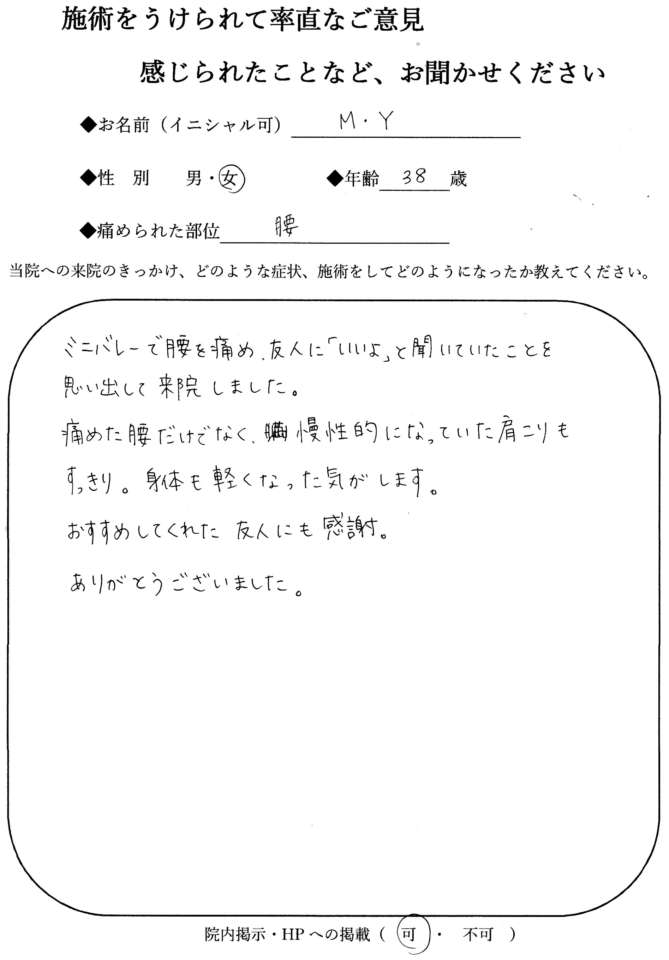 施術をうけられて率直なご意見
感じられたことなど、お聞かせください
◆お名前（イニシャル可） M・Y
◆性　別　　男・女　　◆年齢 38 歳
◆痛められた部位 腰
当院への来院のきっかけ、どのような症状、施術をしてどのようになったか教えてください。
ミニバレーで腰を痛め、友人に「いいよ」と聞いていたことを
思い出して来院しました。
痛めた腰だけでなく、慢性的になっていた肩こりも
すっきり。身体も軽くなった気がします。
おすすめしてくれた友人にも感謝。
ありがとうございました。
院内掲示・HPへの掲載（　可　・　不可　）